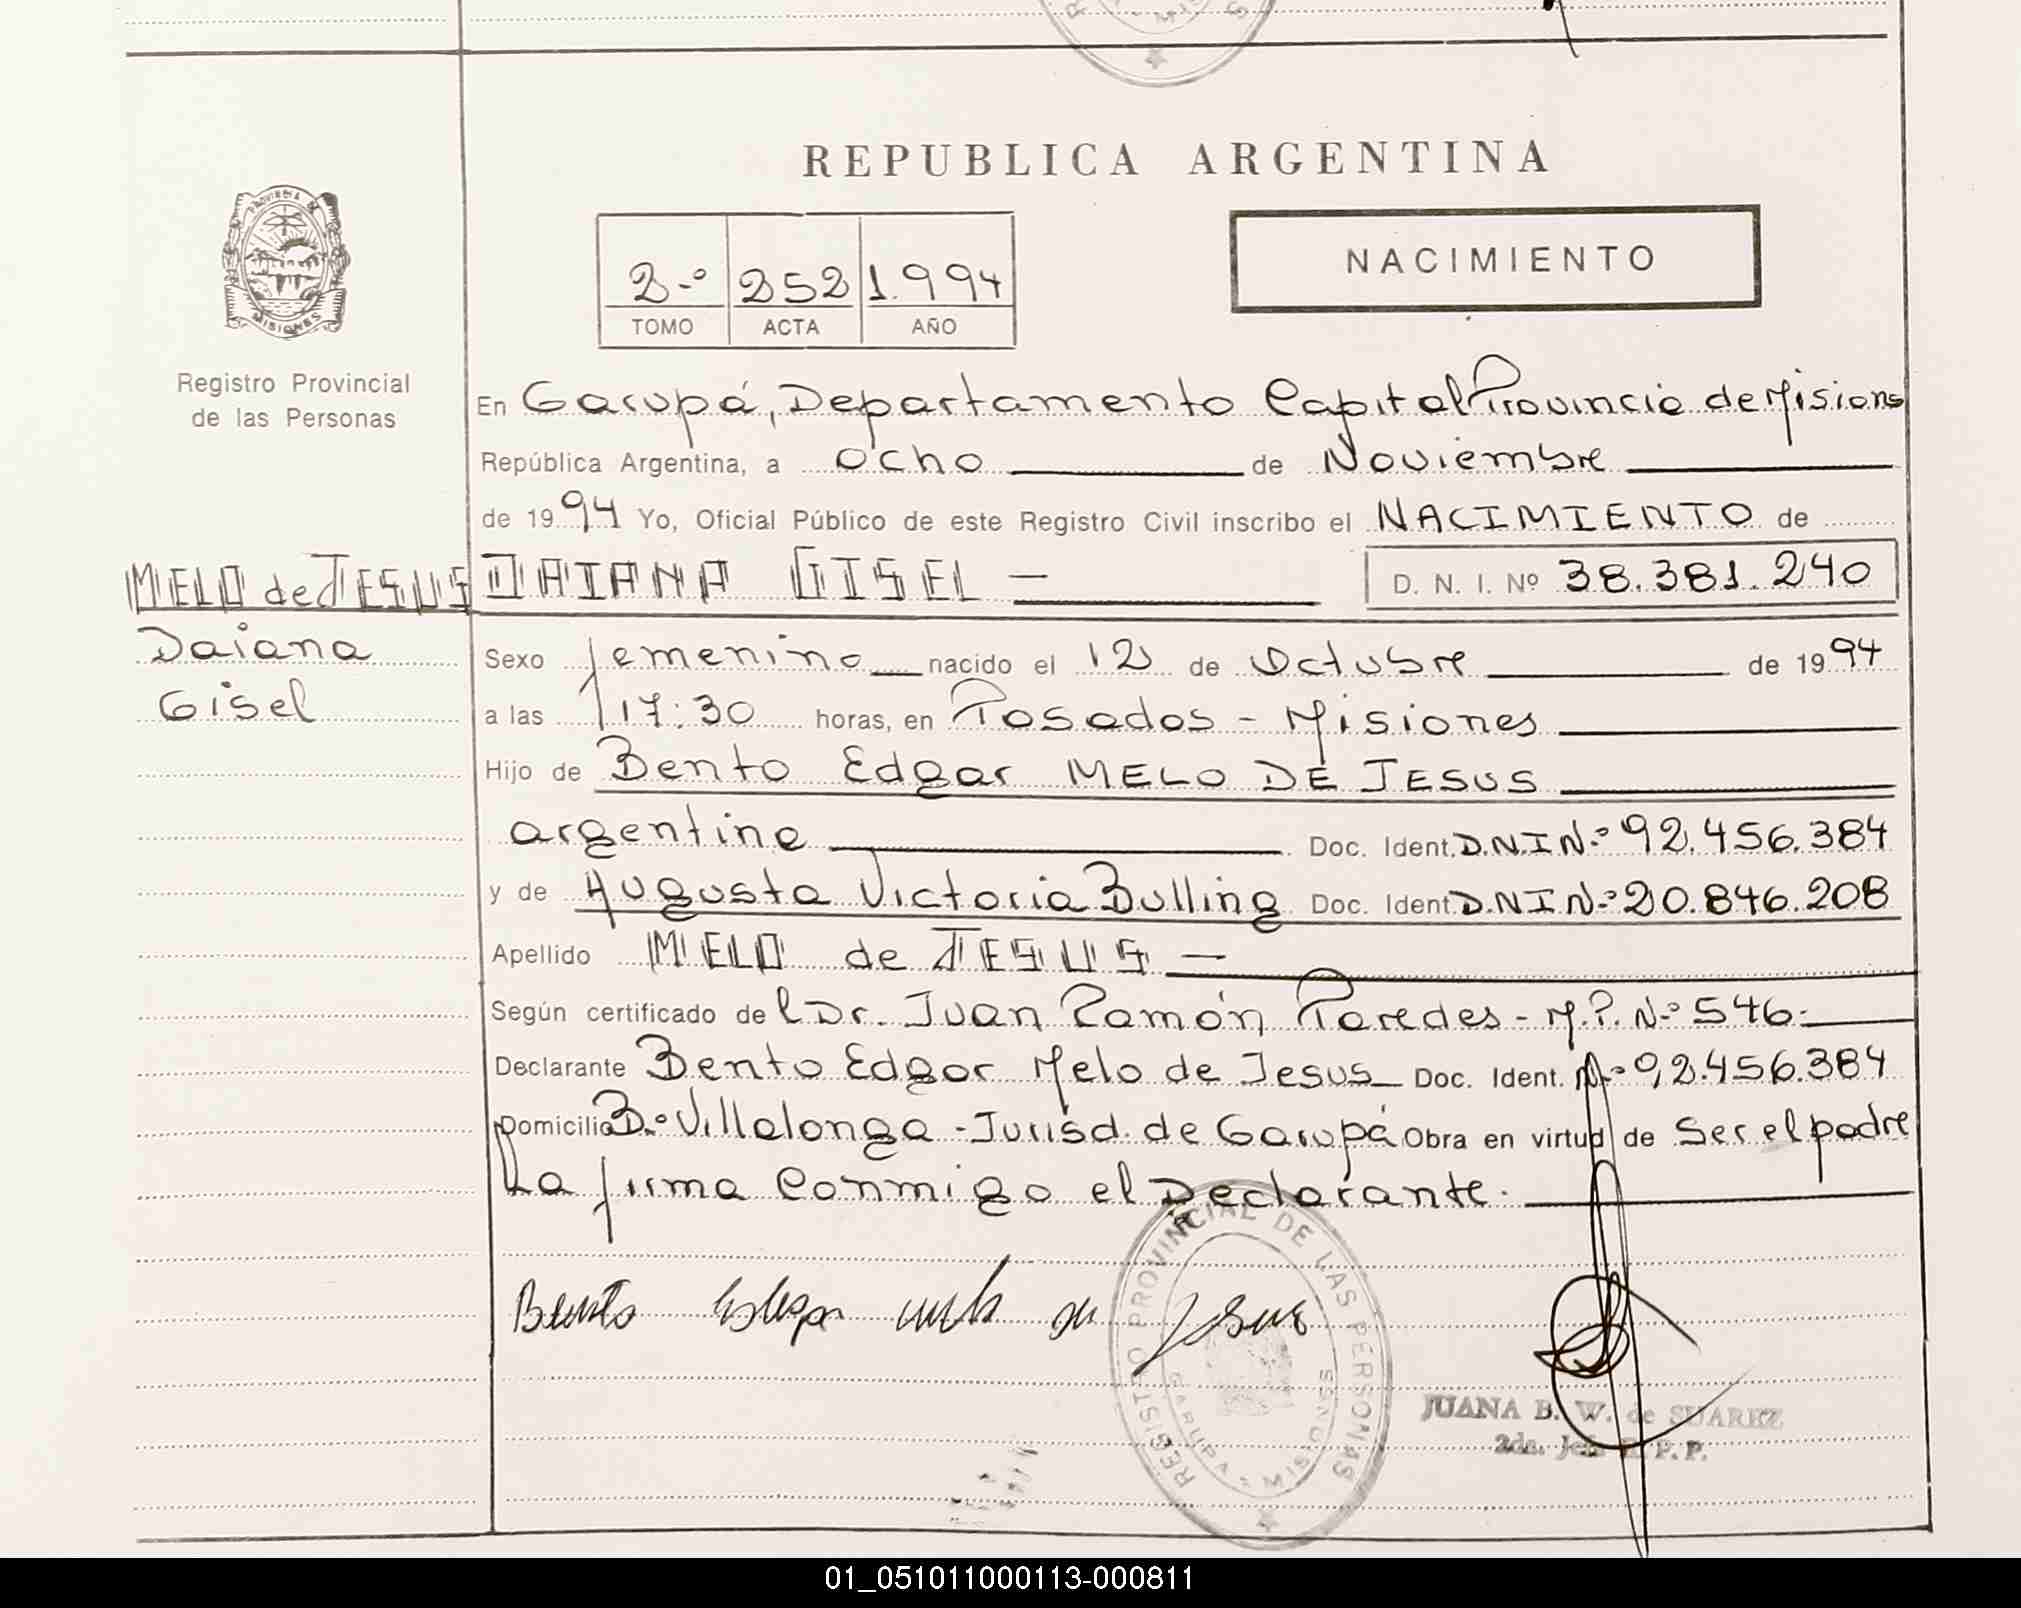 REPUBLICA ARGENTINA
PROVINCIA DE
MISIONES
Registro Provincial
de las Personas
2-º 252 1.994
TOMO ACTA AÑO
NACIMIENTO
En Garupá, Departamento Capital Provincia de Misiones
República Argentina, a ocho de Noviembre
de 1994 Yo, Oficial Público de este Registro Civil inscribo el NACIMIENTO de
MELO de JESUS DAIANA GISEL — D. N. I. Nº 38.381.240
Daiana
Gisel
Sexo femenino nacido el 12 de Octubre de 1994
a las 17:30 horas, en Posadas - Misiones
Hijo de Bento Edgar MELO DE JESUS
argentino Doc. Ident. D.N.I N.º 92.456.384
y de Augusta Victoria Bulling Doc. Ident. D.N.I N.º 20.846.208
Apellido MELO de JESUS —
Según certificado del Dr. Juan Ramón Paredes - M.P. N.º 546.
Declarante Bento Edgar Melo de Jesus Doc. Ident. N.º 92.456.384
Domicilio B.º Villalonga - Jurisd. de Garupá Obra en virtud de Ser el padre
La firma Conmigo el Declarante.
Bento Edgar Melo de Jesus
REGISTRO PROVINCIAL DE LAS PERSONAS
GARUPA - MISIONES
JUANA B. W. de SUAREZ
2da. Jefa R.P.P.
01_051011000113-000811